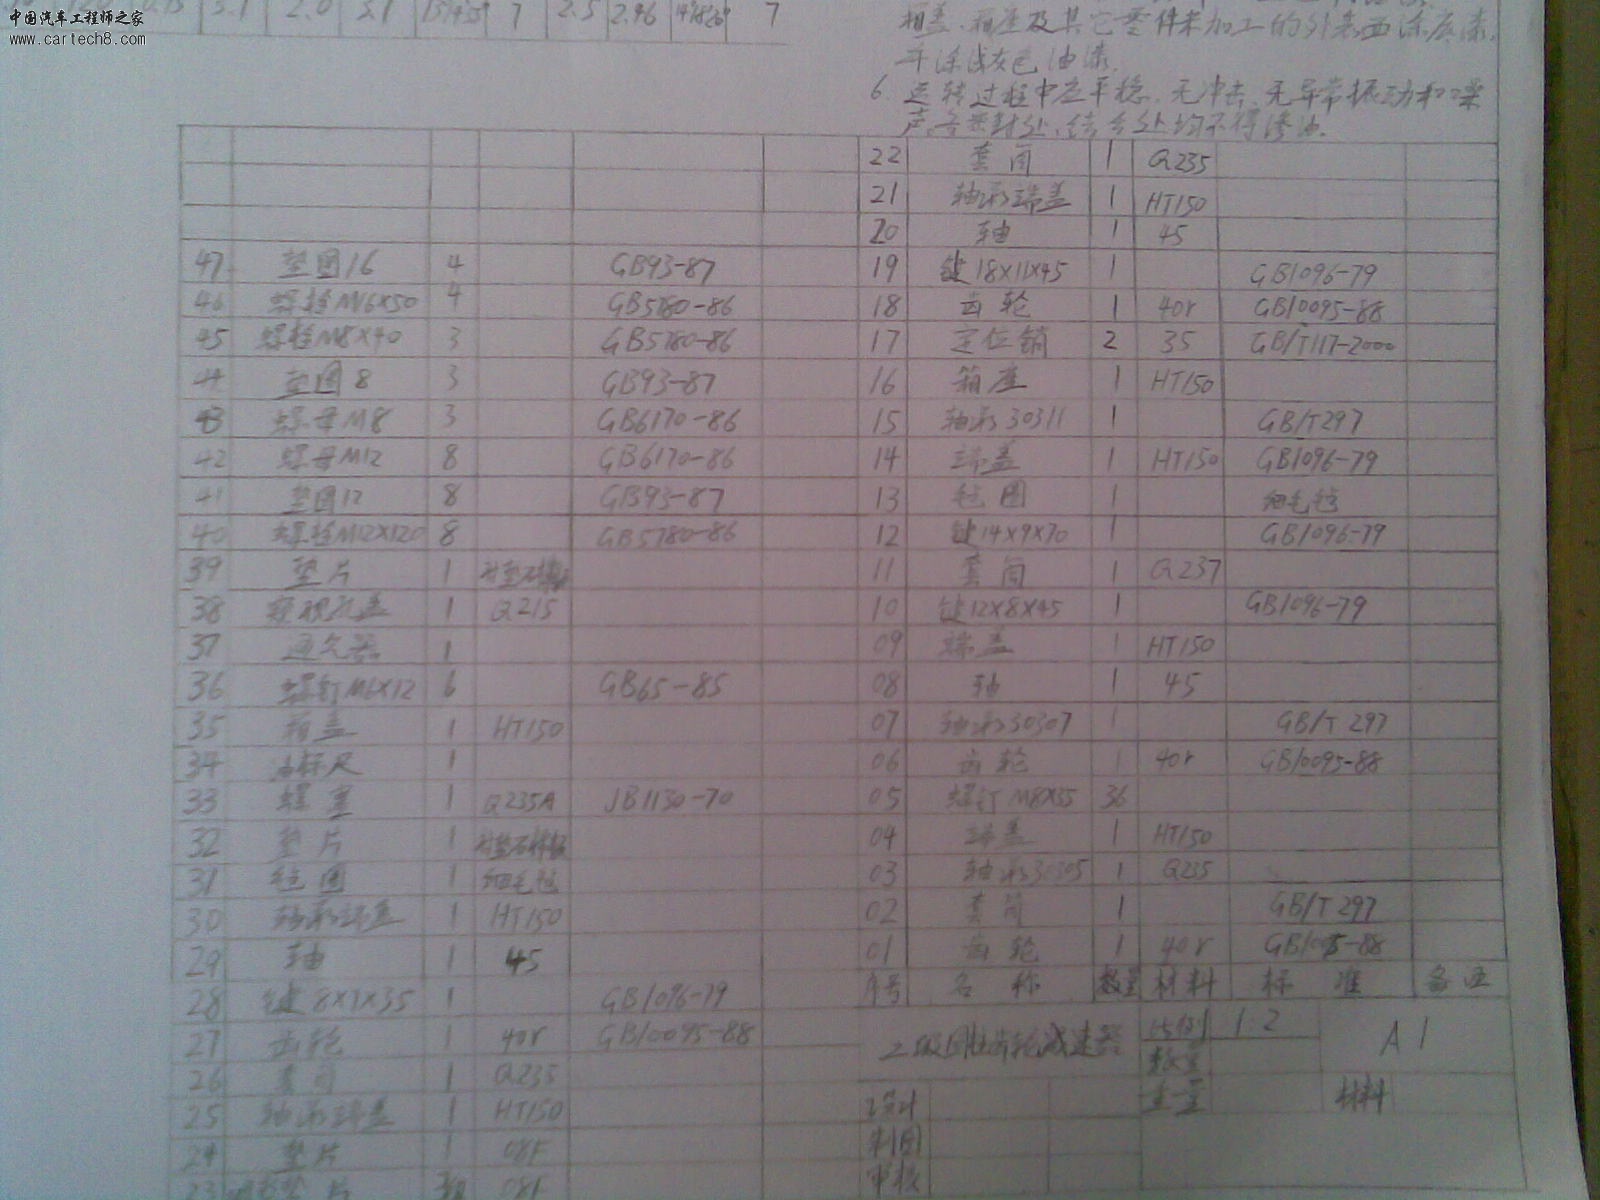 中国汽车工程师之家
www.cartech8.com
3.1 2.0 3.1 7 2.5 2.96 7
箱盖、箱座及其它零件未加工的外表面涂底漆,
并涂浅灰色油漆.
6. 运转过程中应平稳、无冲击、无异常振动和噪
声,各密封处、结合处均不得渗油.
22 套筒 1 Q235
21 轴承端盖 1 HT150
20 轴 1 45
47 垫圈16 4 GB93-87 19 键18X11X45 1 GB1096-79
46 螺栓M16X50 4 GB5780-86 18 齿轮 1 40r GB10095-88
45 螺栓M8X40 3 GB5780-86 17 定位销 2 35 GB/T117-2000
44 垫圈8 3 GB93-87 16 箱座 1 HT150
43 螺母M8 3 GB6170-86 15 轴承30311 1 GB/T297
42 螺母M12 8 GB6170-86 14 端盖 1 HT150 GB1096-79
41 垫圈12 8 GB93-87 13 毡圈 1 细毛毡
40 螺栓M12X120 8 GB5780-86 12 键14X9X70 1 GB1096-79
39 垫片 1 11 套筒 1 Q237
38 窥视孔盖 1 Q215 10 键12X8X45 1 GB1096-79
37 通气器 1 09 端盖 1 HT150
36 螺钉M6X12 6 GB65-85 08 轴 1 45
35 箱盖 1 HT150 07 轴承30307 1 GB/T 297
34 油标尺 1 06 齿轮 1 40r GB10095-88
33 螺塞 1 Q235A JB1130-70 05 螺钉M8X35 36
32 垫片 1 04 端盖 1 HT150
31 毡圈 1 细毛毡 03 轴承30305 1 Q235
30 轴承端盖 1 HT150 02 套筒 1 GB/T297
29 轴 1 45 01 齿轮 1 40r GB10095-88
28 键8X7X35 1 GB1096-79 序号 名称 数量 材料 标准 备注
27 齿轮 1 40r GB10095-88 二级圆柱齿轮减速器 比例 1:2 A1
26 套筒 1 Q235 数量
25 轴承端盖 1 HT150 设计 重量 材料
24 垫片 1 08F 制图
23 垫片 08F 审核